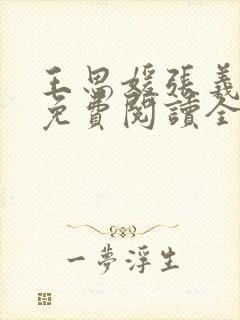 王思媛張義
免費閱讀全
一夢浮生